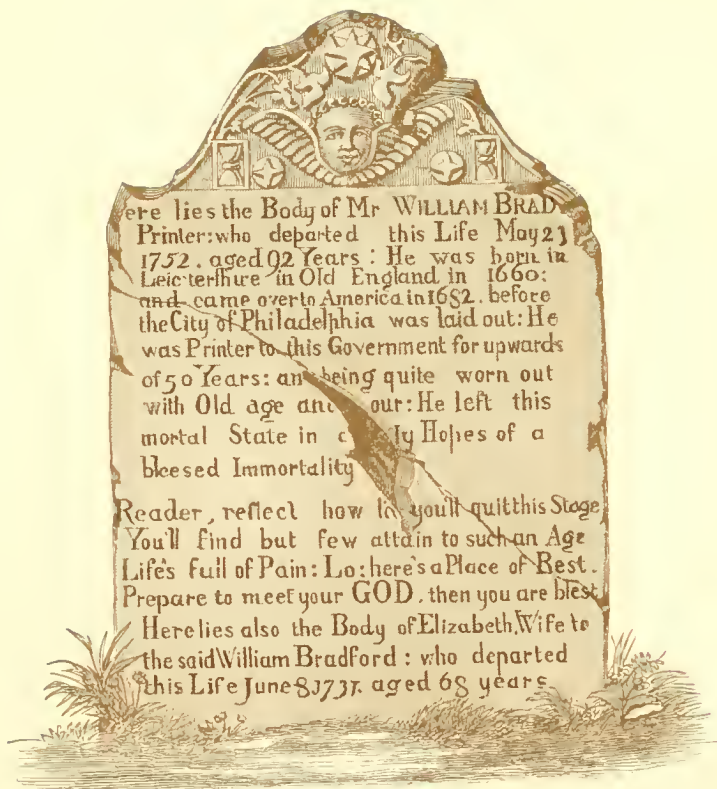 ere lies the Body of Mr WILLIAM BRAD
Printer: who departed this Life May 23
1752. aged 92 Years: He was born in
Leicestershire in Old England in 1660:
and came over to America in 1682. before
the City of Philadelphia was laid out: He
was Printer to this Government for upwards
of 50 Years: an being quite worn out
with Old age and our: He left this
mortal State in ly Hopes of a
blessed Immortality
Reader, reflect how you'll quit this Stage
You'll find but few attain to such an Age
Life's full of Pain: Lo: here's a Place of Rest.
Prepare to meet your GOD, then you are blest.
Here lies also the Body of Elizabeth, Wife to
the said William Bradford: who departed
this Life June 8 1731. aged 68 years